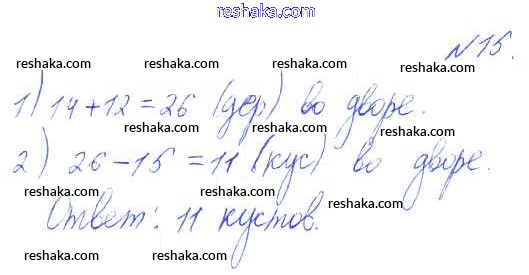 reshaka.com
№ 15.
reshaka.com reshaka.com reshaka.com
1) 14+12=26 (дер) во дворе.
reshaka.com reshaka.com reshaka.com
2) 26-15=11 (кус) во дворе.
reshaka.com reshaka.com reshaka.com
Ответ: 11 кустов.
reshaka.com reshaka.com reshaka.com